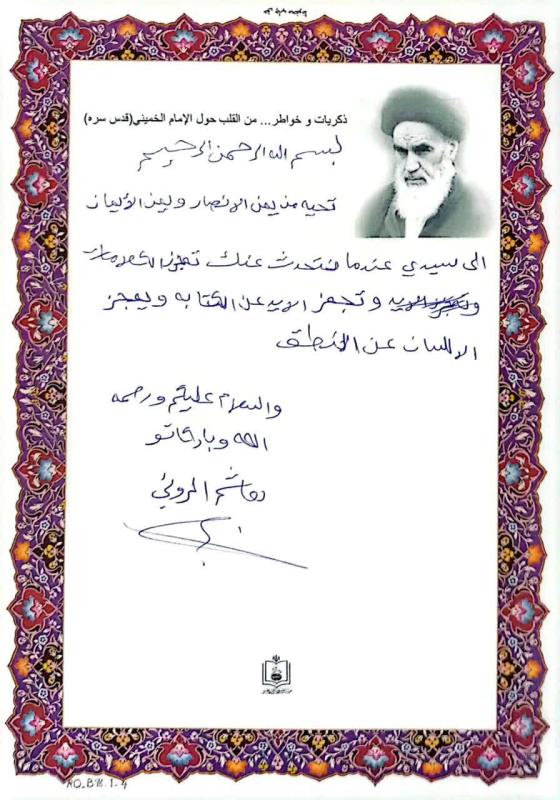 ذكريات و خواطر... من القلب حول الإمام الخميني(قدس سره)
بسم الله الرحمن الرحيم
تحيه من يمن الانصار و يمن الأيمان
الى سيدي عندما نتحدث عنك تعجز الكلامات
و تعجز الايد عن الكتابه و يعجز
الالسان عن النطق
والسلام عليكم ورحمه
الله وباركاتو
هاشم
NO_B98-1-4